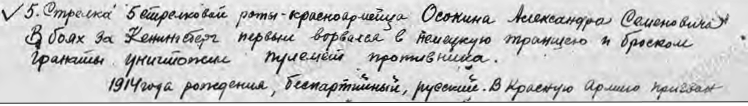 ✓ 5. Стрелка 5 стрелковой роты - красноармейца Осокина Александра Семеновича
В боях за Кенигсберг первым ворвался в немецкую траншею и броском
гранаты уничтожил пулемет противника.
1914 года рождения, беспартийный, русский. В Красную Армию призван